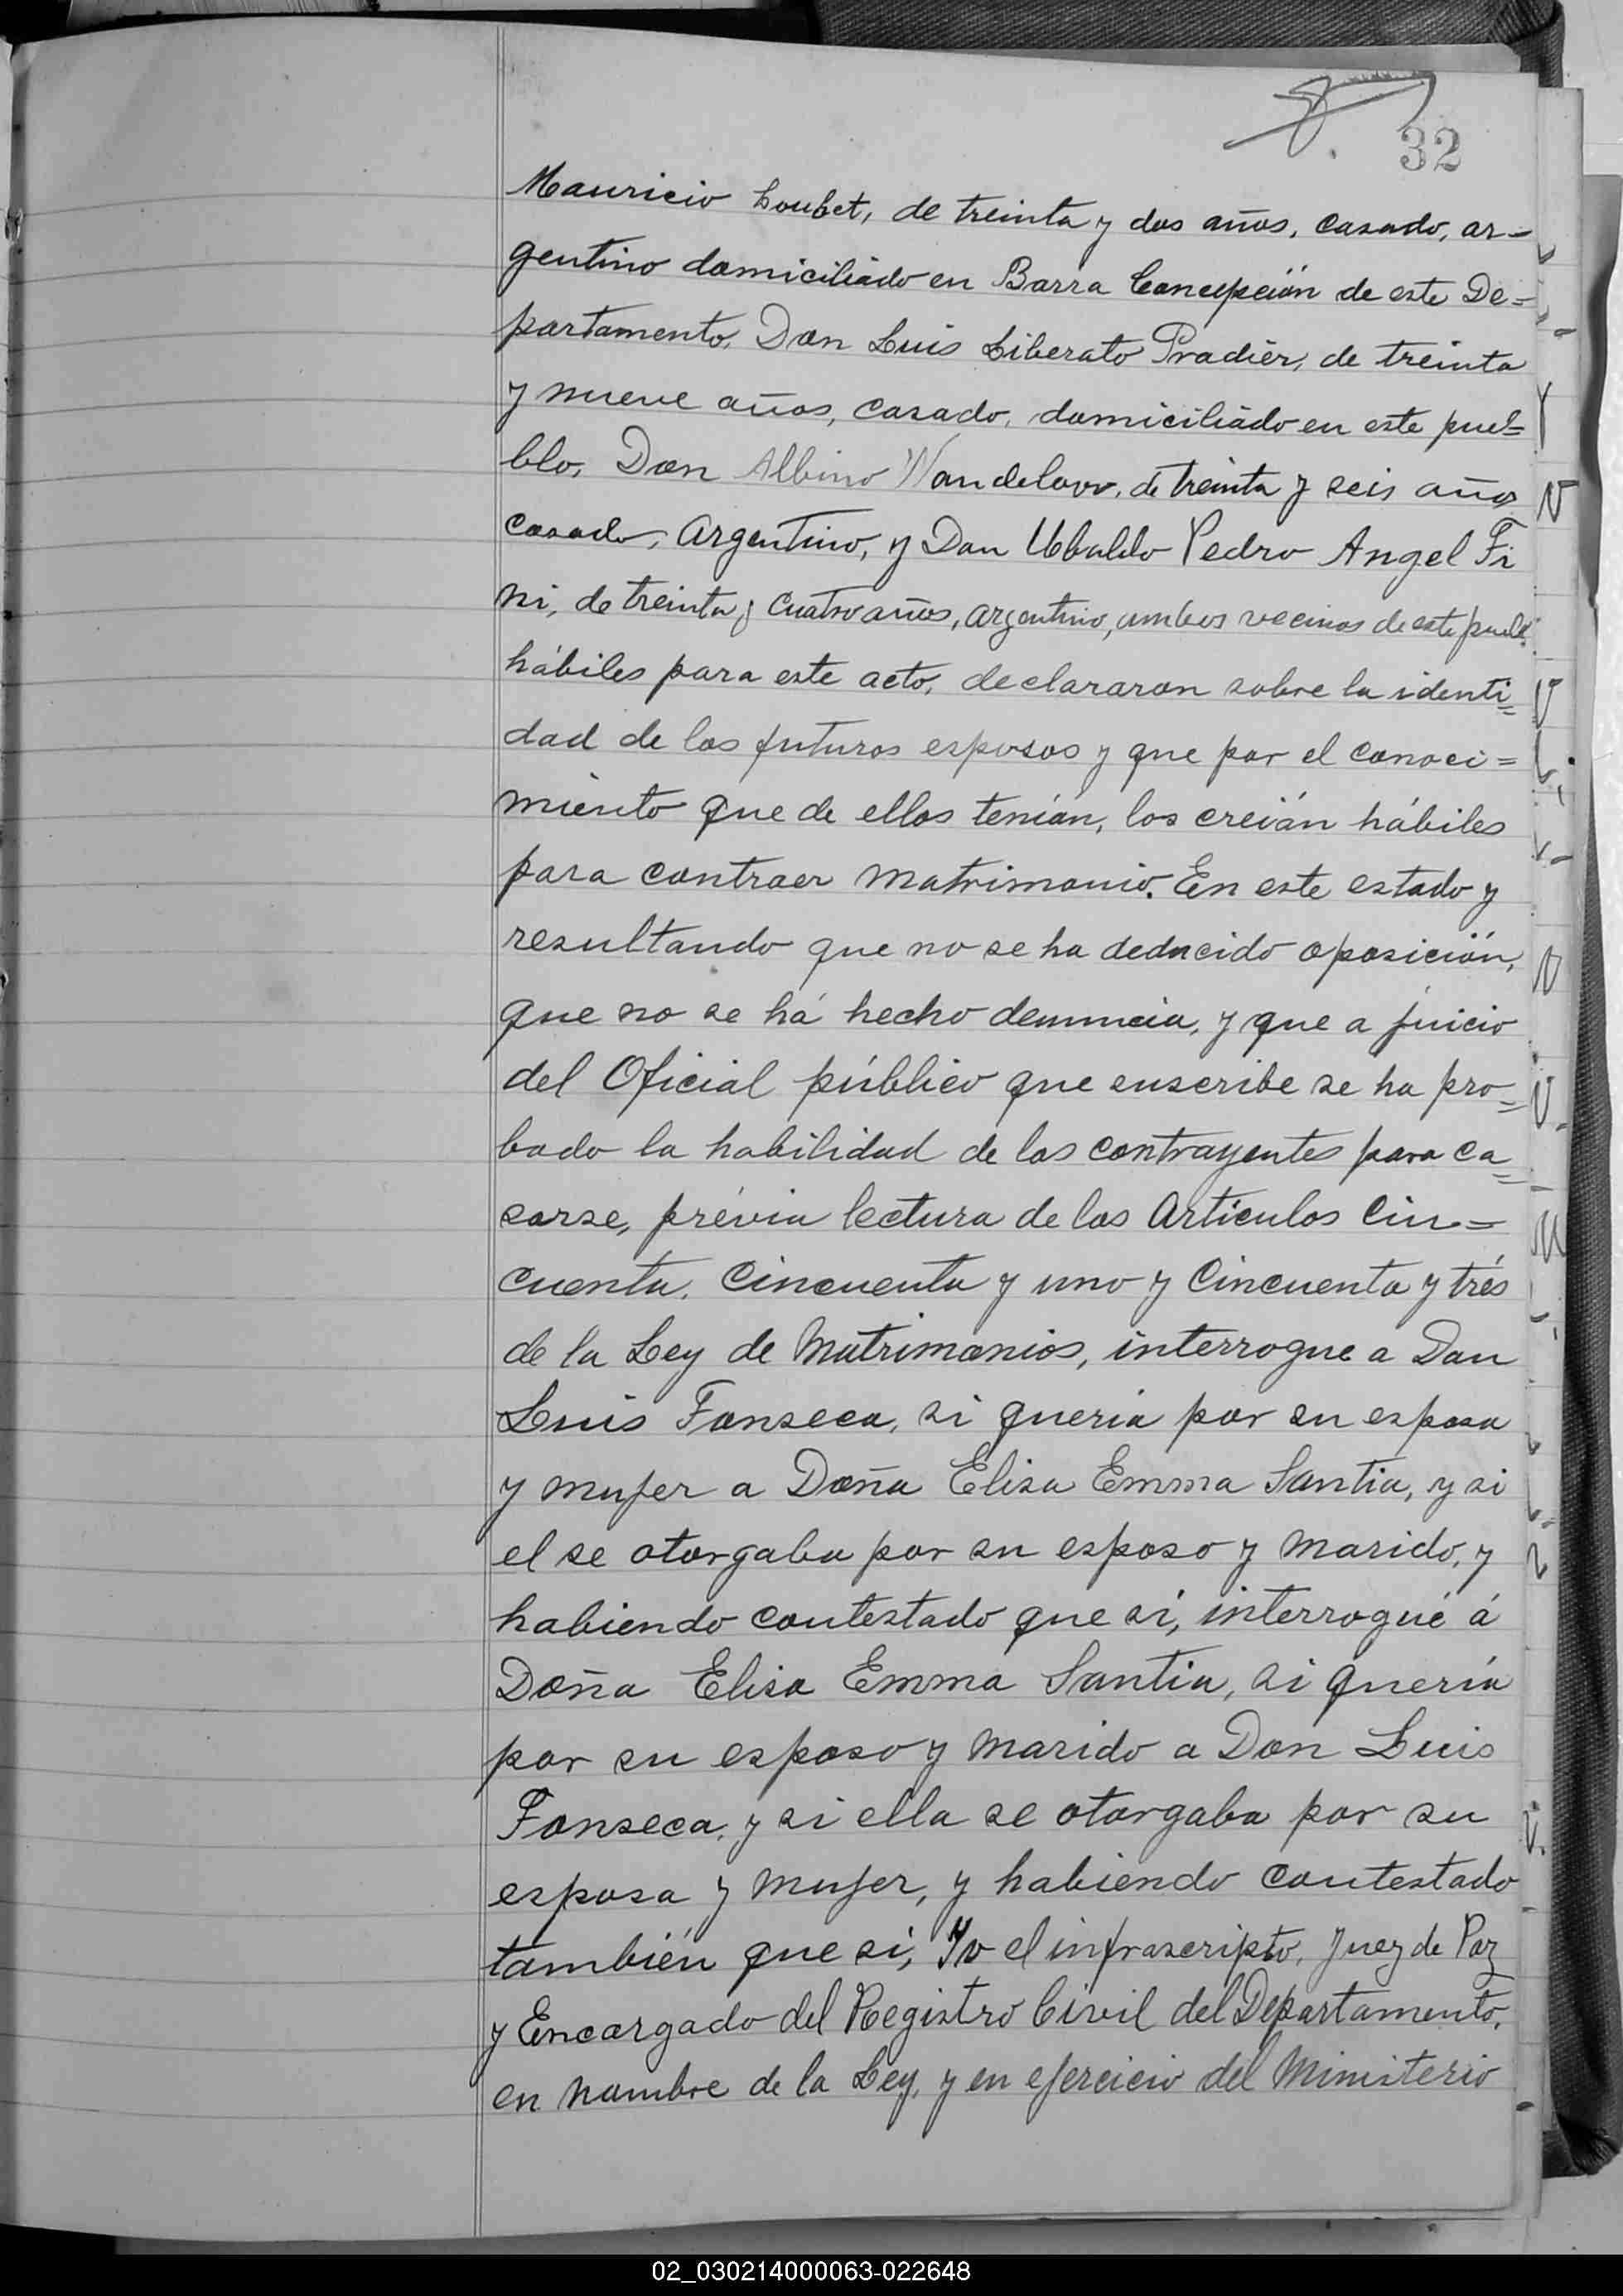 32
Mauricio Loubet, de treinta y dos años, casado, ar=
gentino domiciliado en Barra Concepción de este De=
partamento, Don Luis Liberato Pradier, de treinta
y nueve años, casado, domiciliado en este pue=
blo, Don Albino Wandelow, de treinta y seis años
casado, argentino, y Don Ubaldo Pedro Angel Fi
ni, de treinta y cuatro años, argentino, ambos vecinos de este pueblo
hábiles para este acto, declararon sobre la identi=
dad de los futuros esposos y que por el conoci=
miento que de ellos tenían, los creían hábiles
para contraer matrimonio. En este estado y
resultando que no se ha deducido oposición,
que no se há hecho denuncia, y que a juicio
del Oficial público que suscribe se ha pro=
bado la habilidad de los contrayentes para ca=
sarse, prévia lectura de los Artículos Cin=
cuenta, Cincuenta y uno y Cincuenta y trés
de la Ley de Matrimonios, interrogue a Don
Luis Fonseca, si quería por su esposa
y mujer a Doña Elisa Emma Santia, y si
el se otorgaba por su esposo y marido, y
habiendo contestado que si, interrogué á
Doña Elisa Emma Santia, si quería
por su esposo y marido a Don Luis
Fonseca, y si ella se otorgaba por su
esposa y mujer, y habiendo contestado
también que si, Yo el infrascripto, Juez de Paz
y Encargado del Registro Civil del Departamento,
en nombre de la Ley, y en ejercicio del Ministerio
02_030214000063-022648